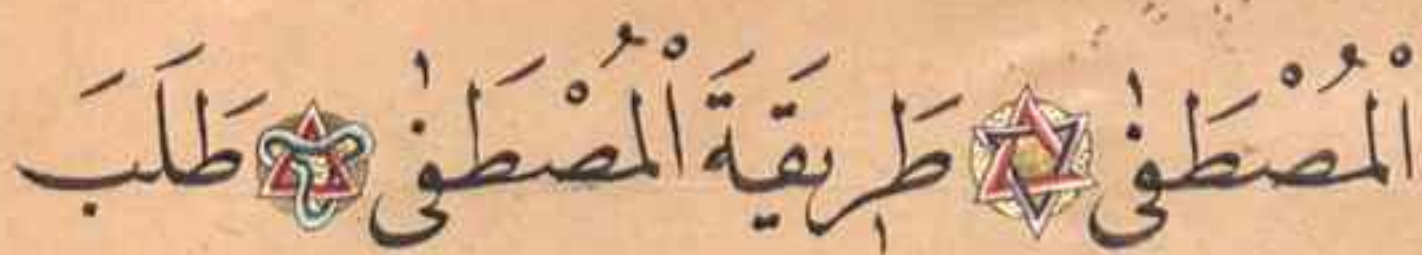 ٱلْمُصْطَفٰى طَرِيقَةَ ٱلْمُصْطَفٰى طَلَبَ